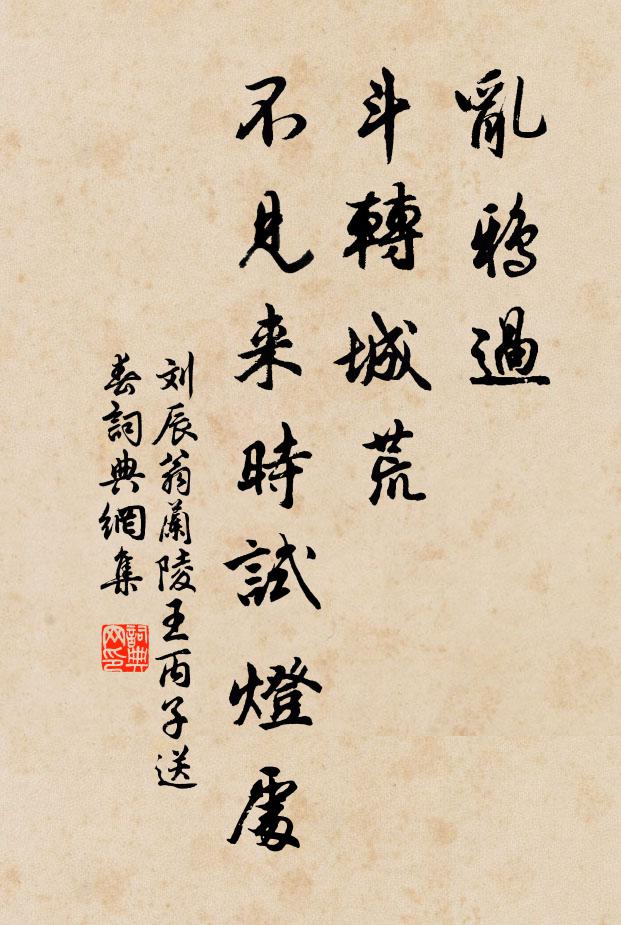 亂鴉過
斗轉城荒
不見来時試燈處
刘辰翁蘭陵王丙子送
春詞典網集
詞典
网印